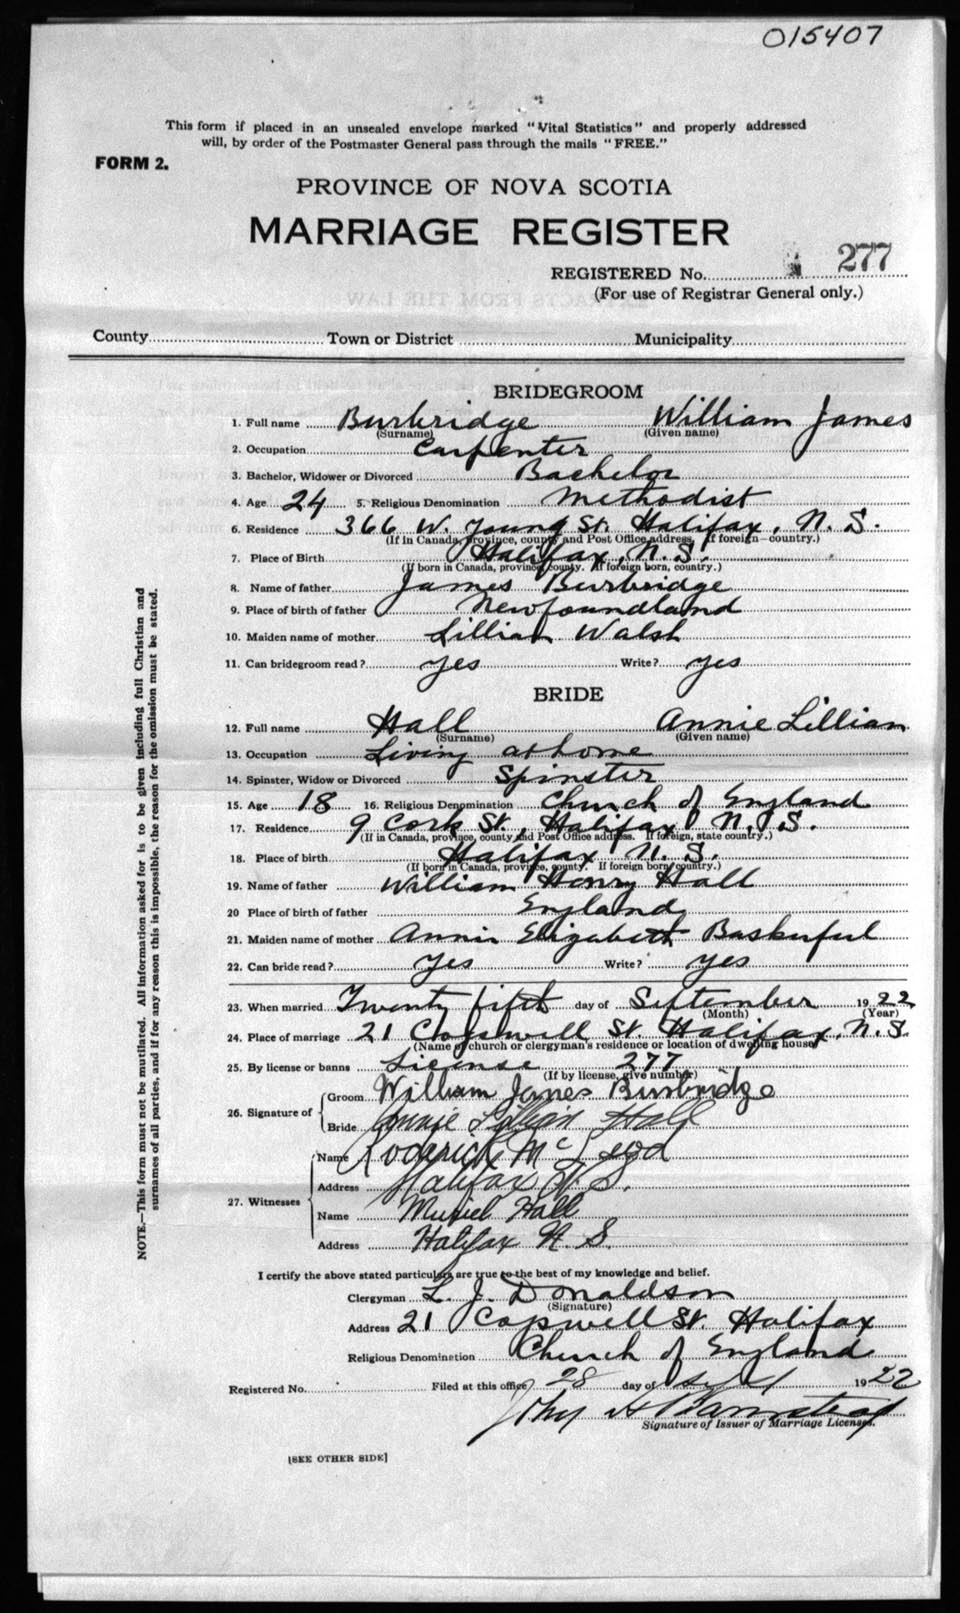 015407
This form if placed in an unsealed envelope marked "Vital Statistics" and properly addressed
will, by order of the Postmaster General pass through the mails "FREE."
FORM 2.
PROVINCE OF NOVA SCOTIA
MARRIAGE REGISTER
REGISTERED No. 277
(For use of Registrar General only.)
County Town or District Municipality
BRIDEGROOM
1. Full name Burbridge William James
(Surname) (Given name)
2. Occupation Carpenter
3. Bachelor, Widower or Divorced Bachelor
4. Age 24 5. Religious Denomination Methodist
6. Residence 366 W. Young St. Halifax, N. S.
(If in Canada, province, county and Post Office address. If foreign—country.)
7. Place of Birth Halifax, N. S.
(If born in Canada, province, county. If foreign born, country.)
8. Name of father James Burbridge
9. Place of birth of father Newfoundland
10. Maiden name of mother Lillian Walsh
11. Can bridegroom read? yes Write? yes
BRIDE
12. Full name Hall Annie Lillian
(Surname) (Given name)
13. Occupation Living at home
14. Spinster, Widow or Divorced Spinster
15. Age 18 16. Religious Denomination Church of England
17. Residence 9 Cork St., Halifax, N. S.
(If in Canada, province, county and Post Office address. If foreign, state country.)
18. Place of birth Halifax N. S.
(If born in Canada, province, county. If foreign born, country.)
19. Name of father William Henry Hall
20 Place of birth of father England
21. Maiden name of mother Annie Elizabeth
22. Can bride read? yes Write? yes
23. When married Twenty fifth day of September 1922
(Month) (Year)
24. Place of marriage 21 Cogswell St. Halifax, N. S.
(Name of church or clergyman's residence or location of dwelling house)
25. By license or banns License 277
(If by license, give number)
26. Signature of Groom William James Burbridge
Bride Annie Lillian Hall
27. Witnesses Name Roderick McLeod
Address Halifax N. S.
Name Muriel Hall
Address Halifax N. S.
I certify the above stated particulars are true to the best of my knowledge and belief.
Clergyman L. J. Donaldson
(Signature)
Address 21 Cogswell St. Halifax
Religious Denomination Church of England
Registered No. Filed at this office 28 day of Sept 1922
Signature of Issuer of Marriage Licenses.
[SEE OTHER SIDE]
NOTE.—This form must not be mutilated. All information asked for is to be given including full Christian and
surnames of all parties, and if for any reason this is impossible, the reason for the omission must be stated.